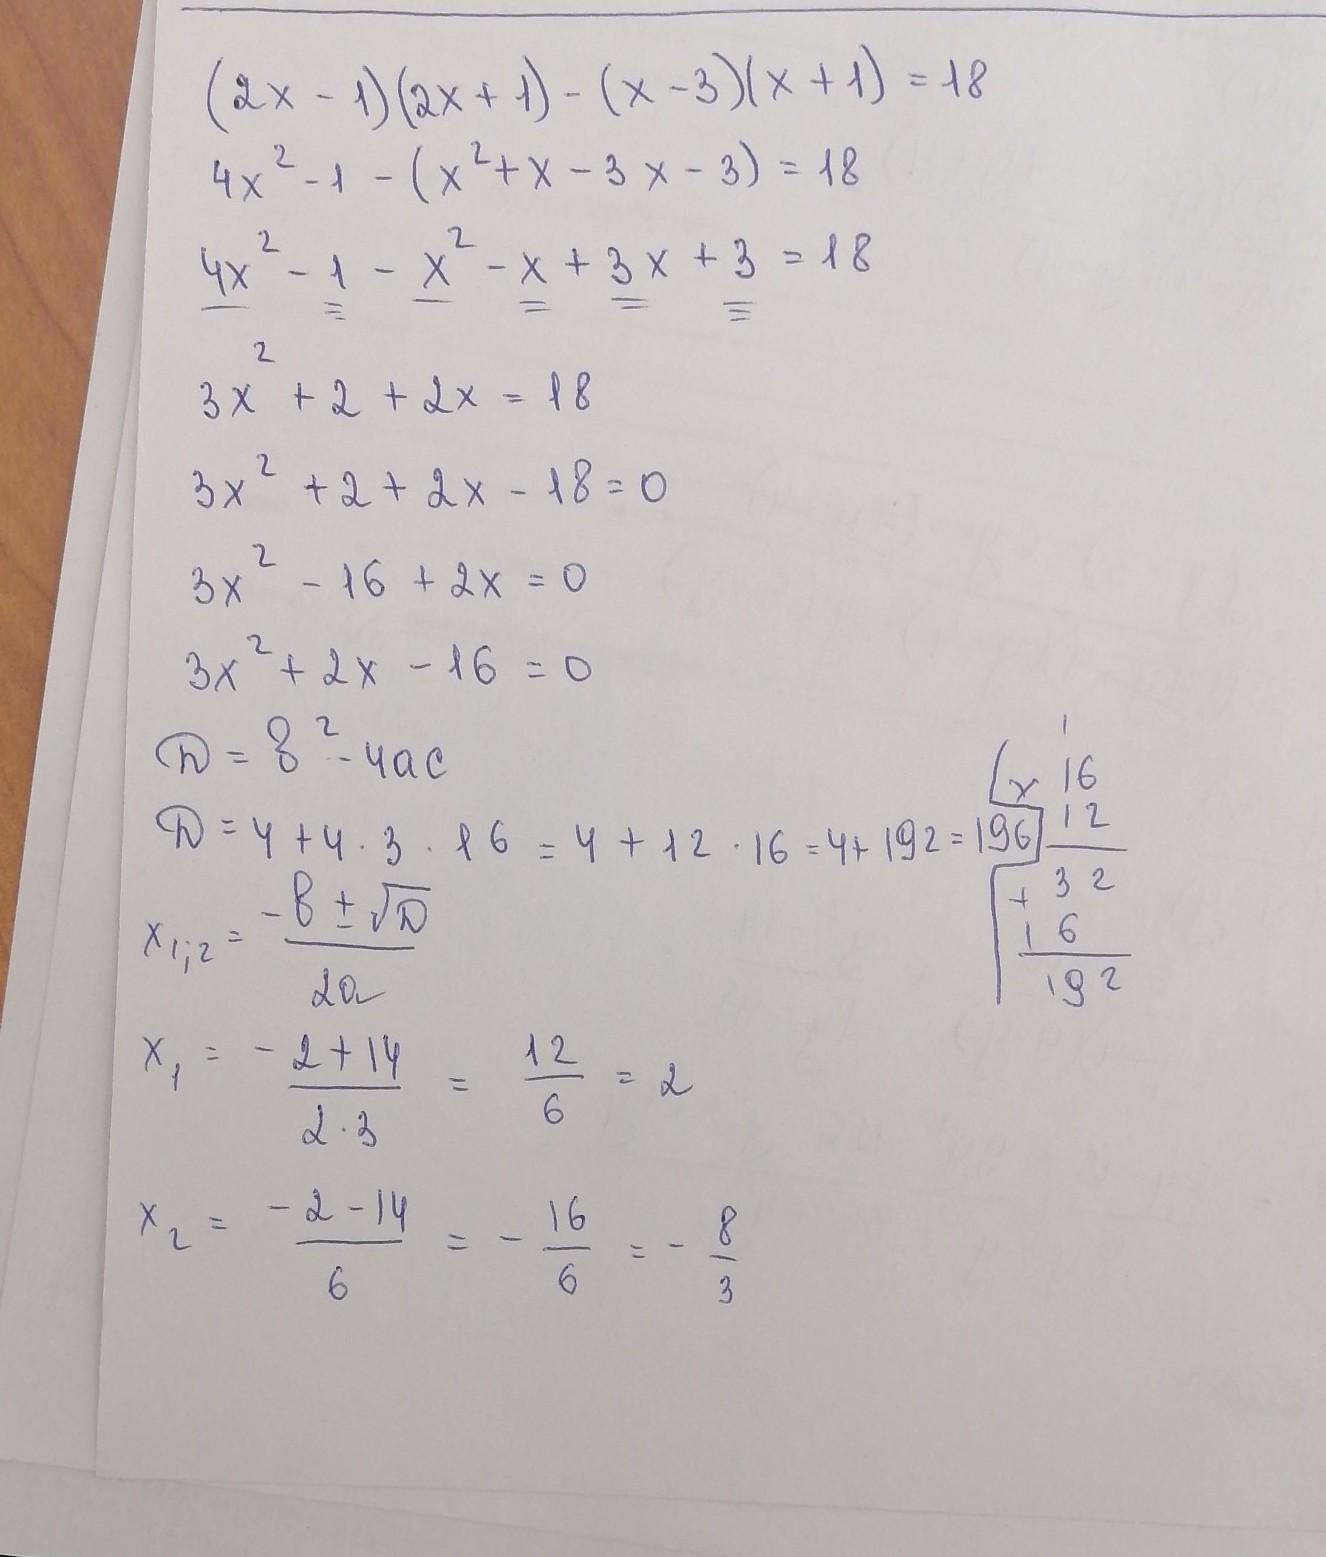 (2x - 1)(2x + 1) - (x - 3)(x + 1) = 18
4x² - 1 - (x² + x - 3x - 3) = 18
4x² - 1 - x² - x + 3x + 3 = 18
3x² + 2 + 2x = 18
3x² + 2 + 2x - 18 = 0
3x² - 16 + 2x = 0
3x² + 2x - 16 = 0
D = b² - 4ac
D = 4 + 4 · 3 · 16 = 4 + 12 · 16 = 4 + 192 = 196
1
x 16
12
+ 32
16
192
x₁;₂ = (-b ± √D) / 2a
x₁ = (-2 + 14) / (2 · 3) = 12/6 = 2
x₂ = (-2 - 14) / 6 = - 16/6 = - 8/3